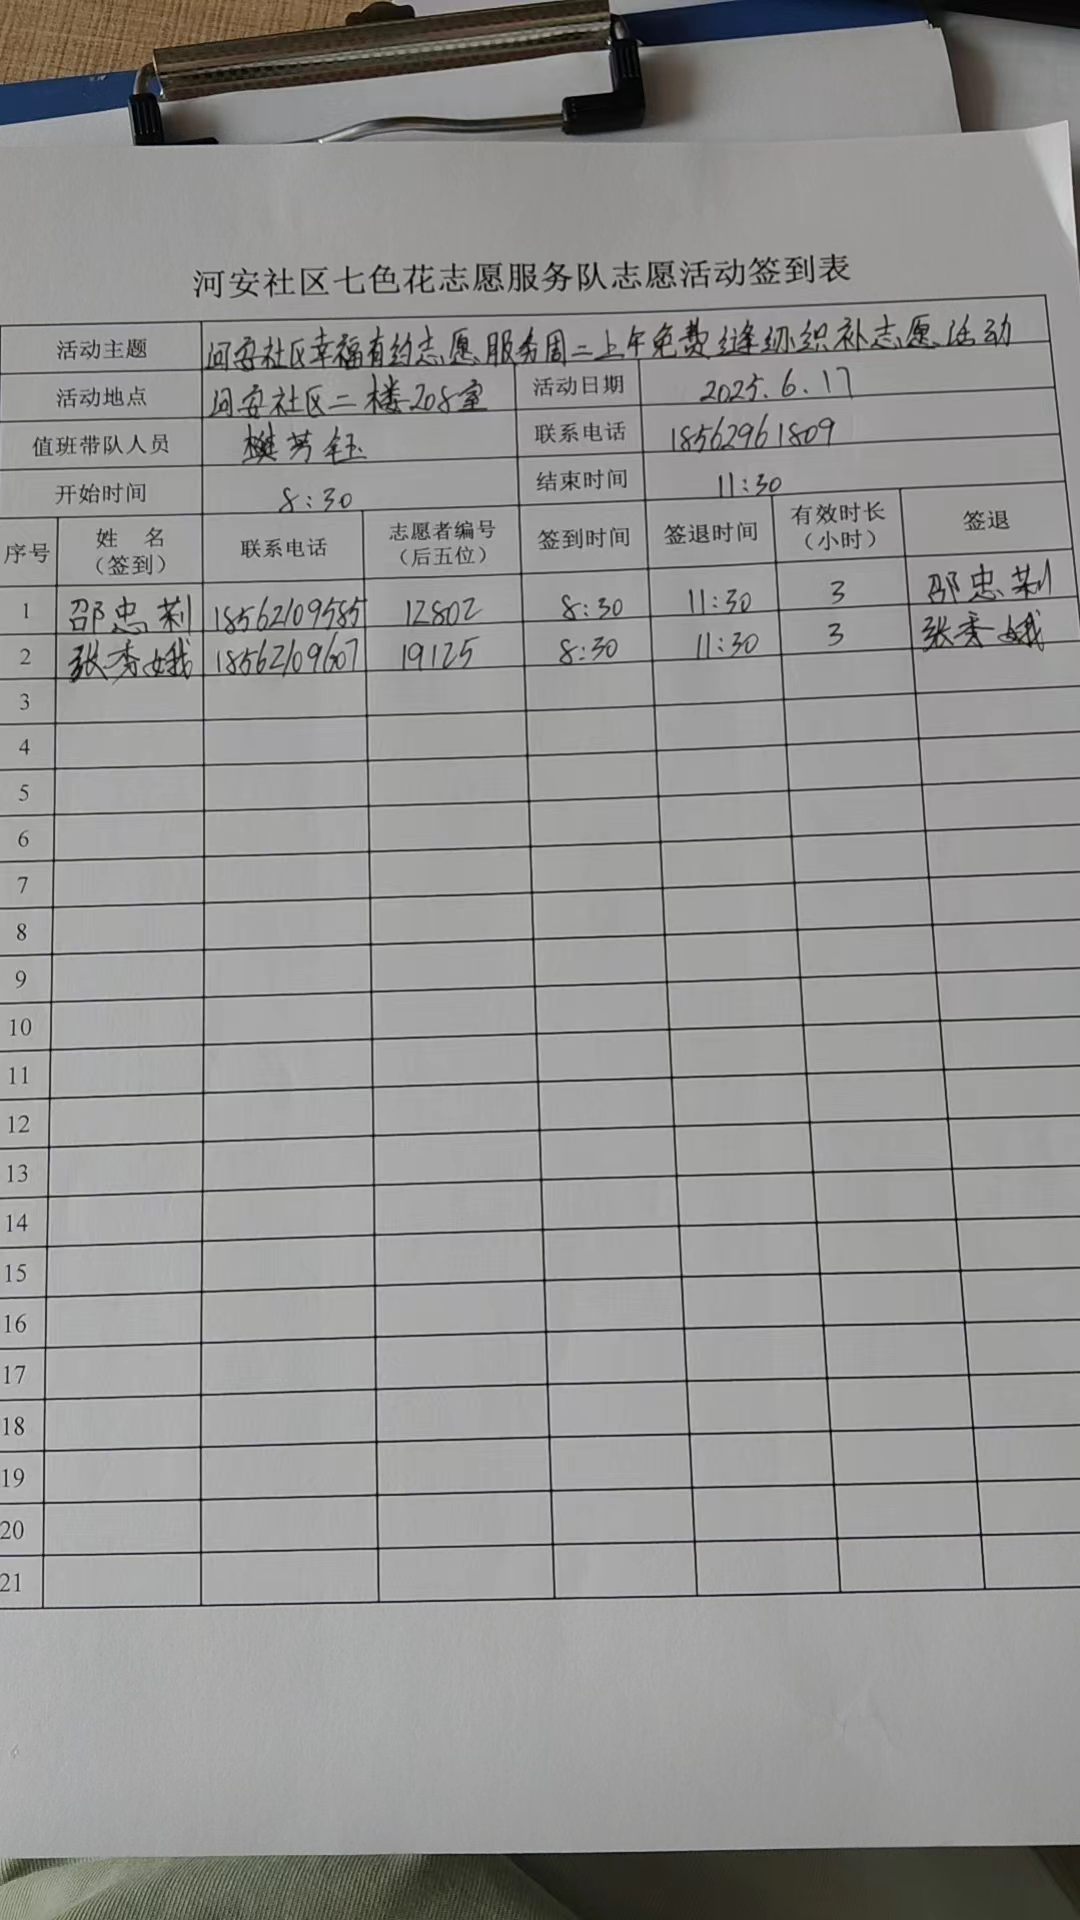 河安社区七色花志愿服务队志愿活动签到表
活动主题 河安社区幸福有约志愿服务周二上午免费缝纫织补志愿活动
活动地点 河安社区二楼208室 活动日期 2025.6.17
值班带队人员 樊芳钰 联系电话 18562961809
开始时间 8:30 结束时间 11:30
序号 姓 名（签到） 联系电话 志愿者编号（后五位） 签到时间 签退时间 有效时长（小时） 签退
1 邵忠莉 18562109585 12802 8:30 11:30 3 邵忠莉
2 张秀娥 18562109607 19125 8:30 11:30 3 张秀娥
3
4
5
6
7
8
9
10
11
12
13
14
15
16
17
18
19
20
21